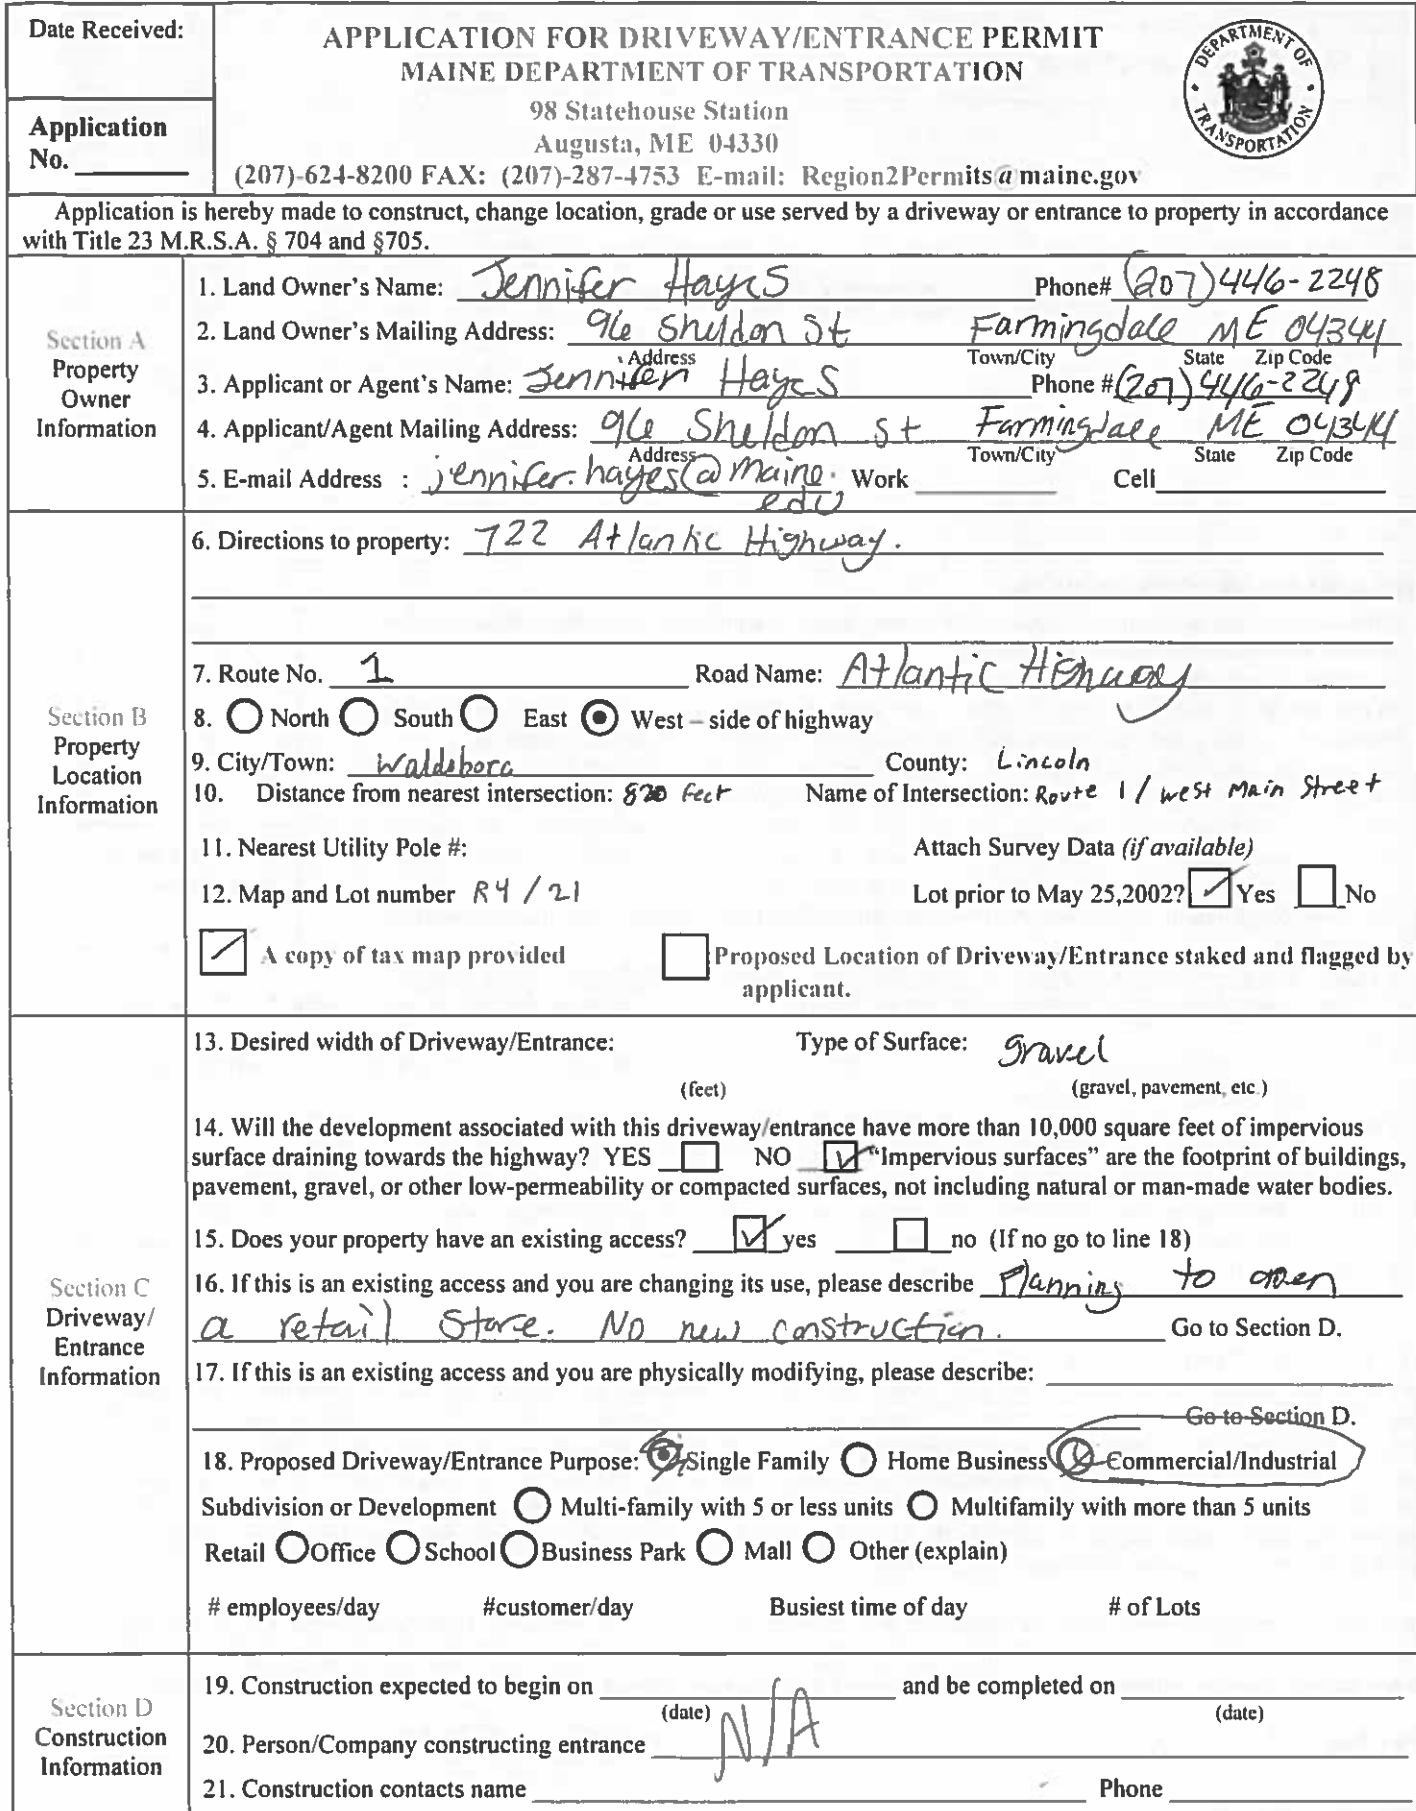 Date Received:
APPLICATION FOR DRIVEWAY/ENTRANCE PERMIT
MAINE DEPARTMENT OF TRANSPORTATION
98 Statehouse Station
Augusta, ME 04330
(207)-624-8200 FAX: (207)-287-4753 E-mail: Region2Permits@maine.gov
DEPARTMENT OF TRANSPORTATION
Application
No.
Application is hereby made to construct, change location, grade or use served by a driveway or entrance to property in accordance
with Title 23 M.R.S.A. § 704 and §705.
Section A
Property
Owner
Information
1. Land Owner's Name: Jennifer Hayes Phone# (207) 446-2248
2. Land Owner's Mailing Address: 96 Sheldon St Farmingdale ME 04344
Address Town/City State Zip Code
3. Applicant or Agent's Name: Jennifer Hayes Phone # (207) 446-2248
4. Applicant/Agent Mailing Address: 96 Sheldon St Farmingdale ME 04344
Address Town/City State Zip Code
5. E-mail Address : jennifer.hayes@maine. Work Cell
edu
Section B
Property
Location
Information
6. Directions to property: 722 Atlantic Highway.
7. Route No. 1 Road Name: Atlantic Highway
8. North South East West – side of highway
9. City/Town: Waldoboro County: Lincoln
10. Distance from nearest intersection: 820 feet Name of Intersection: Route 1 / west Main Street
11. Nearest Utility Pole #: Attach Survey Data (if available)
12. Map and Lot number R4 / 21 Lot prior to May 25,2002? Yes No
A copy of tax map provided Proposed Location of Driveway/Entrance staked and flagged by
applicant.
Section C
Driveway/
Entrance
Information
13. Desired width of Driveway/Entrance: Type of Surface: gravel
(feet) (gravel, pavement, etc.)
14. Will the development associated with this driveway/entrance have more than 10,000 square feet of impervious
surface draining towards the highway? YES NO "Impervious surfaces" are the footprint of buildings,
pavement, gravel, or other low-permeability or compacted surfaces, not including natural or man-made water bodies.
15. Does your property have an existing access? yes no (If no go to line 18)
16. If this is an existing access and you are changing its use, please describe Planning to open
a retail store. No new construction. Go to Section D.
17. If this is an existing access and you are physically modifying, please describe:
Go to Section D.
18. Proposed Driveway/Entrance Purpose: Single Family Home Business Commercial/Industrial
Subdivision or Development Multi-family with 5 or less units Multifamily with more than 5 units
Retail Office School Business Park Mall Other (explain)
# employees/day #customer/day Busiest time of day # of Lots
Section D
Construction
Information
19. Construction expected to begin on and be completed on
(date) (date)
N/A
20. Person/Company constructing entrance
21. Construction contacts name Phone